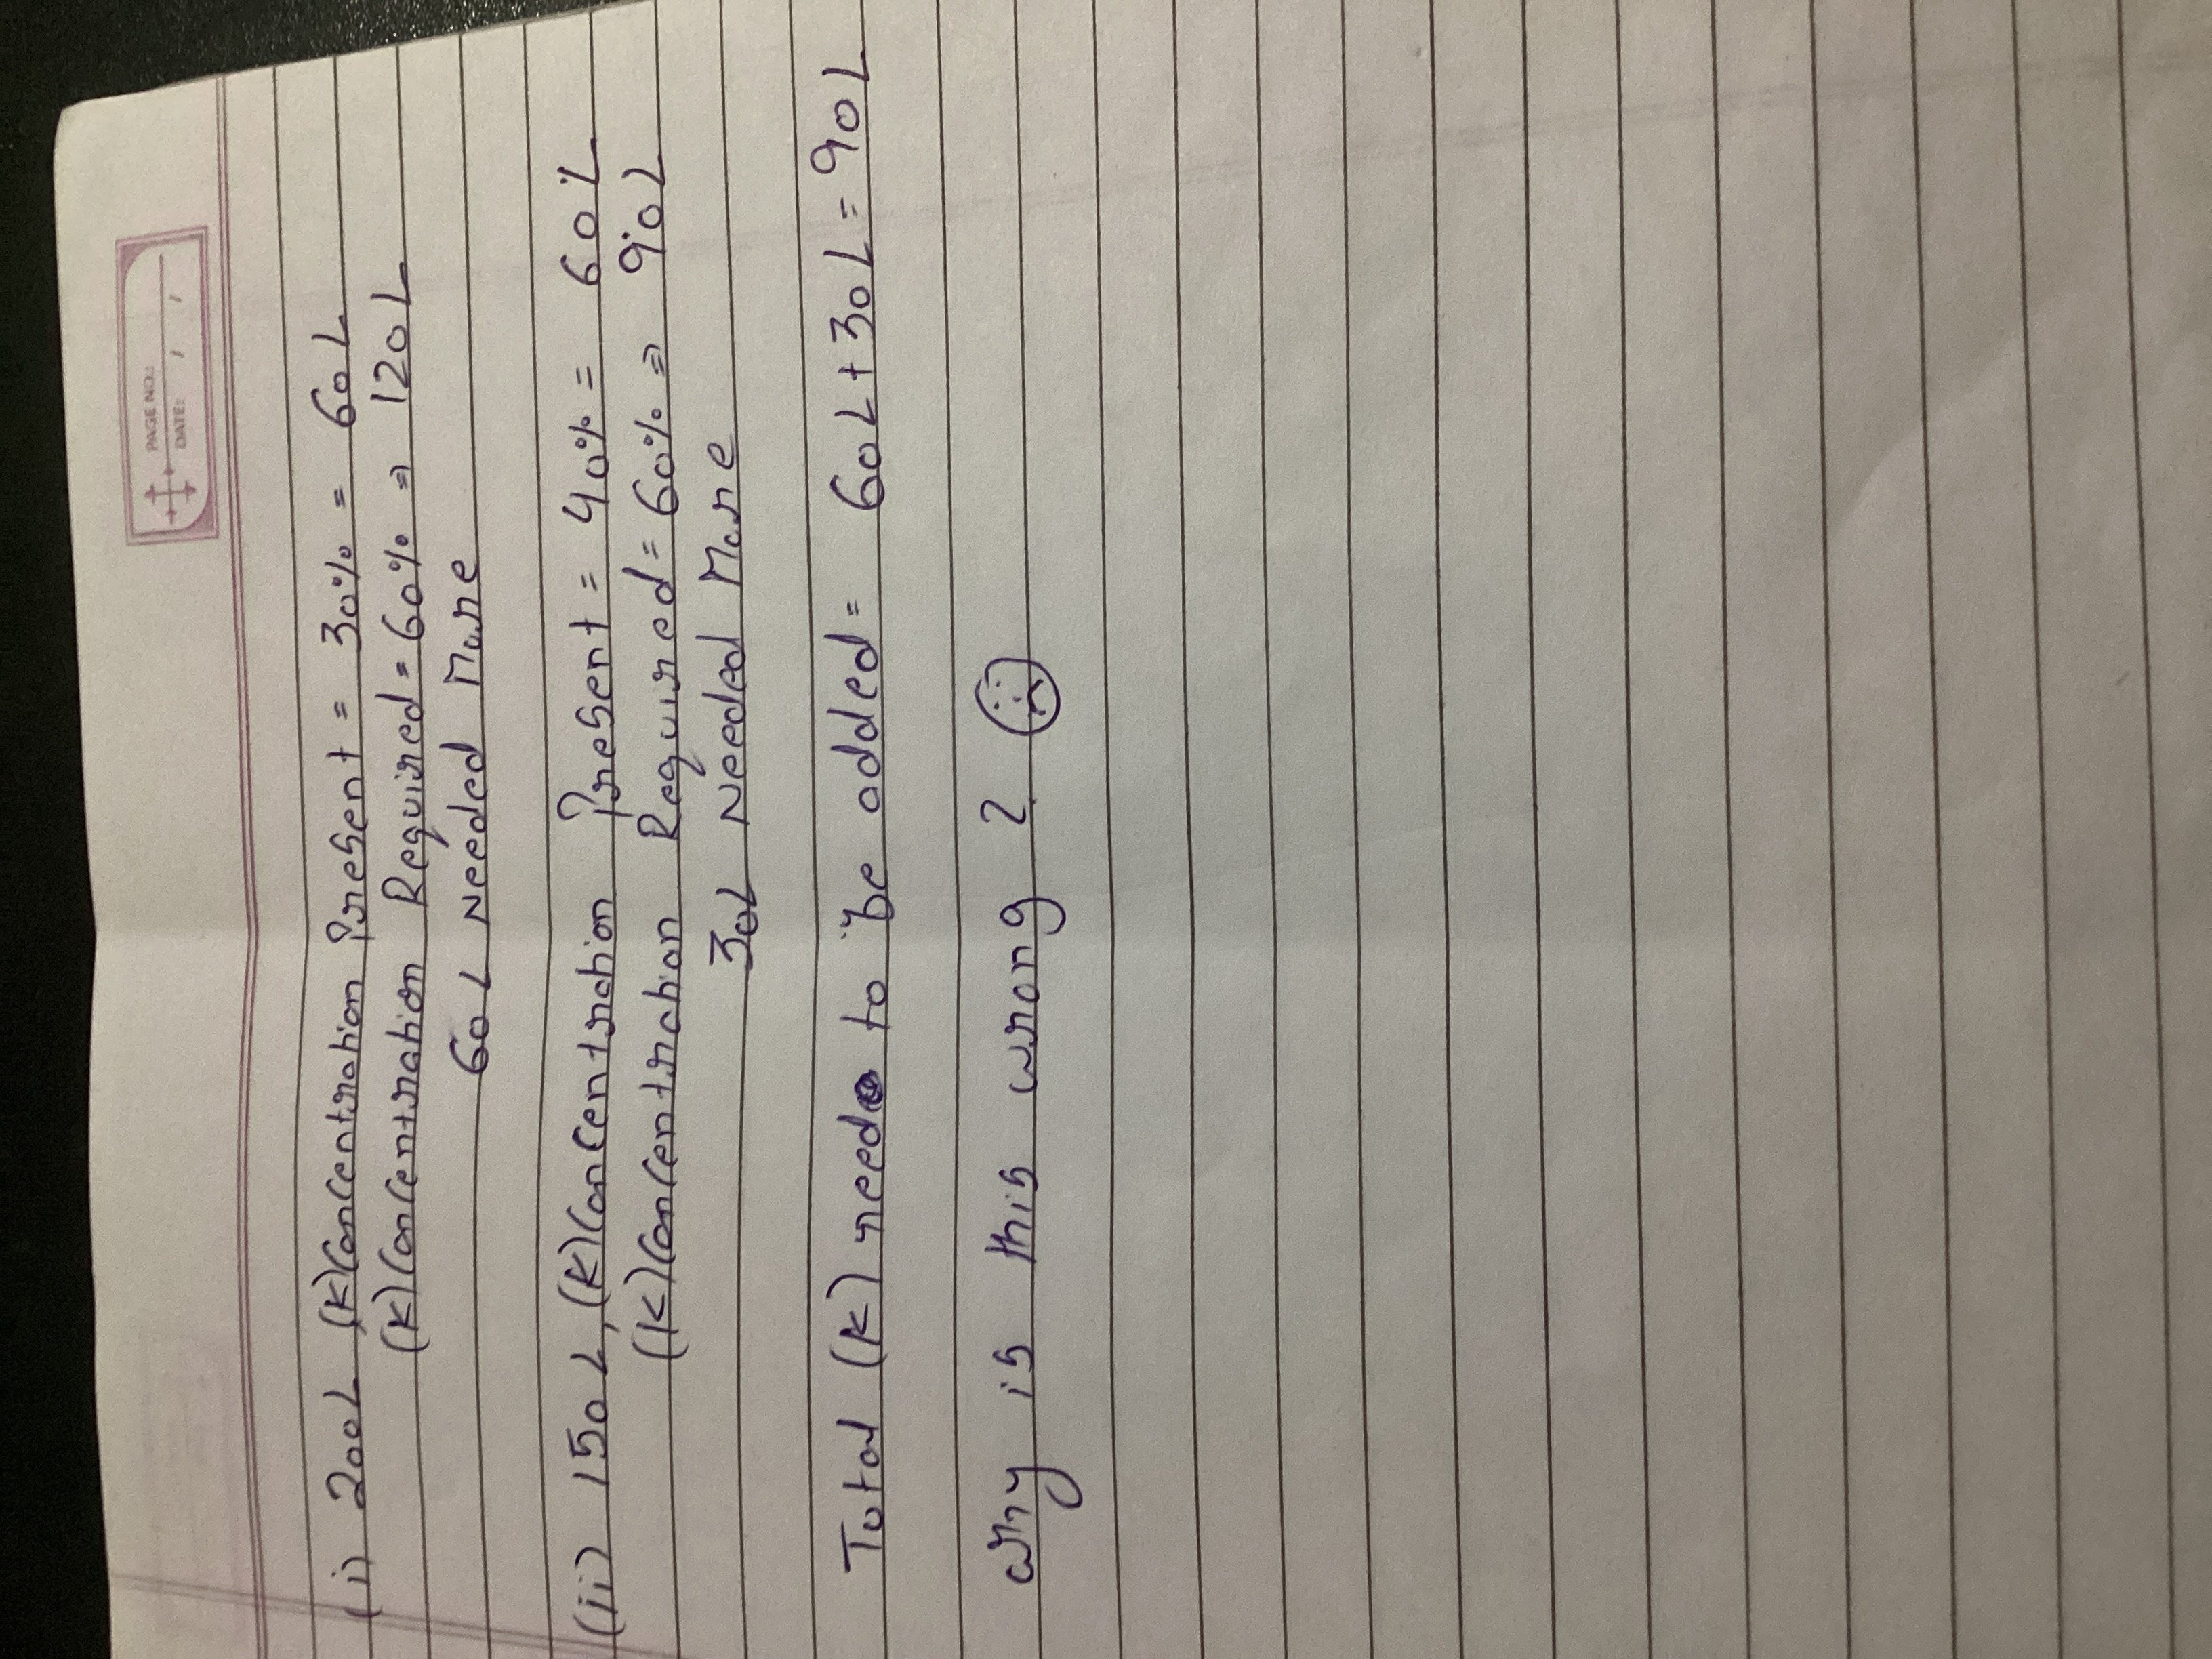 PAGE NO.:
DATE: / /
(i) 200L, (K) Concentration Present = 30% = 60L
(K) Concentration Required = 60% ⇒ 120L
60L Needed More
(ii) 150L, (K) Concentration Present = 40% = 60L
(K) Concentration Required = 60% ⇒ 90L
30L Needed More
Total (K) need to be added = 60L + 30L = 90L
Why is this wrong ? ☹